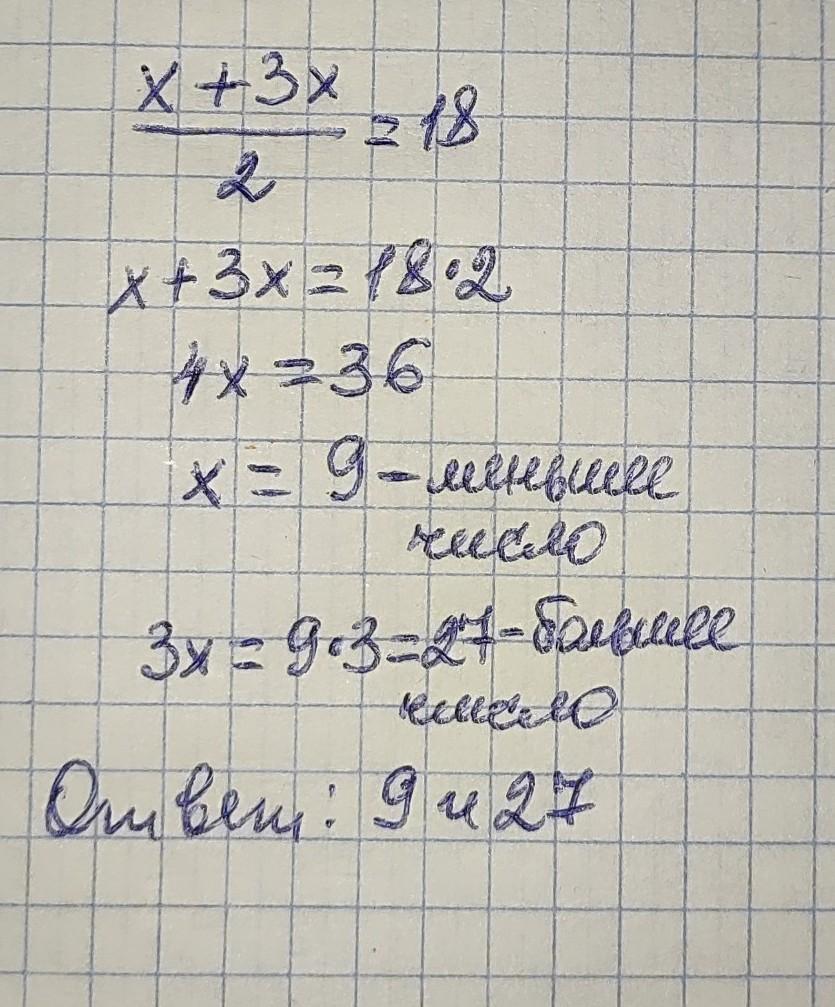 x + 3x
2
= 18
x + 3x = 18 · 2
4x = 36
x = 9 - меньшее
число
3x = 9 · 3 = 27 - большее
число
Ответ: 9 и 27